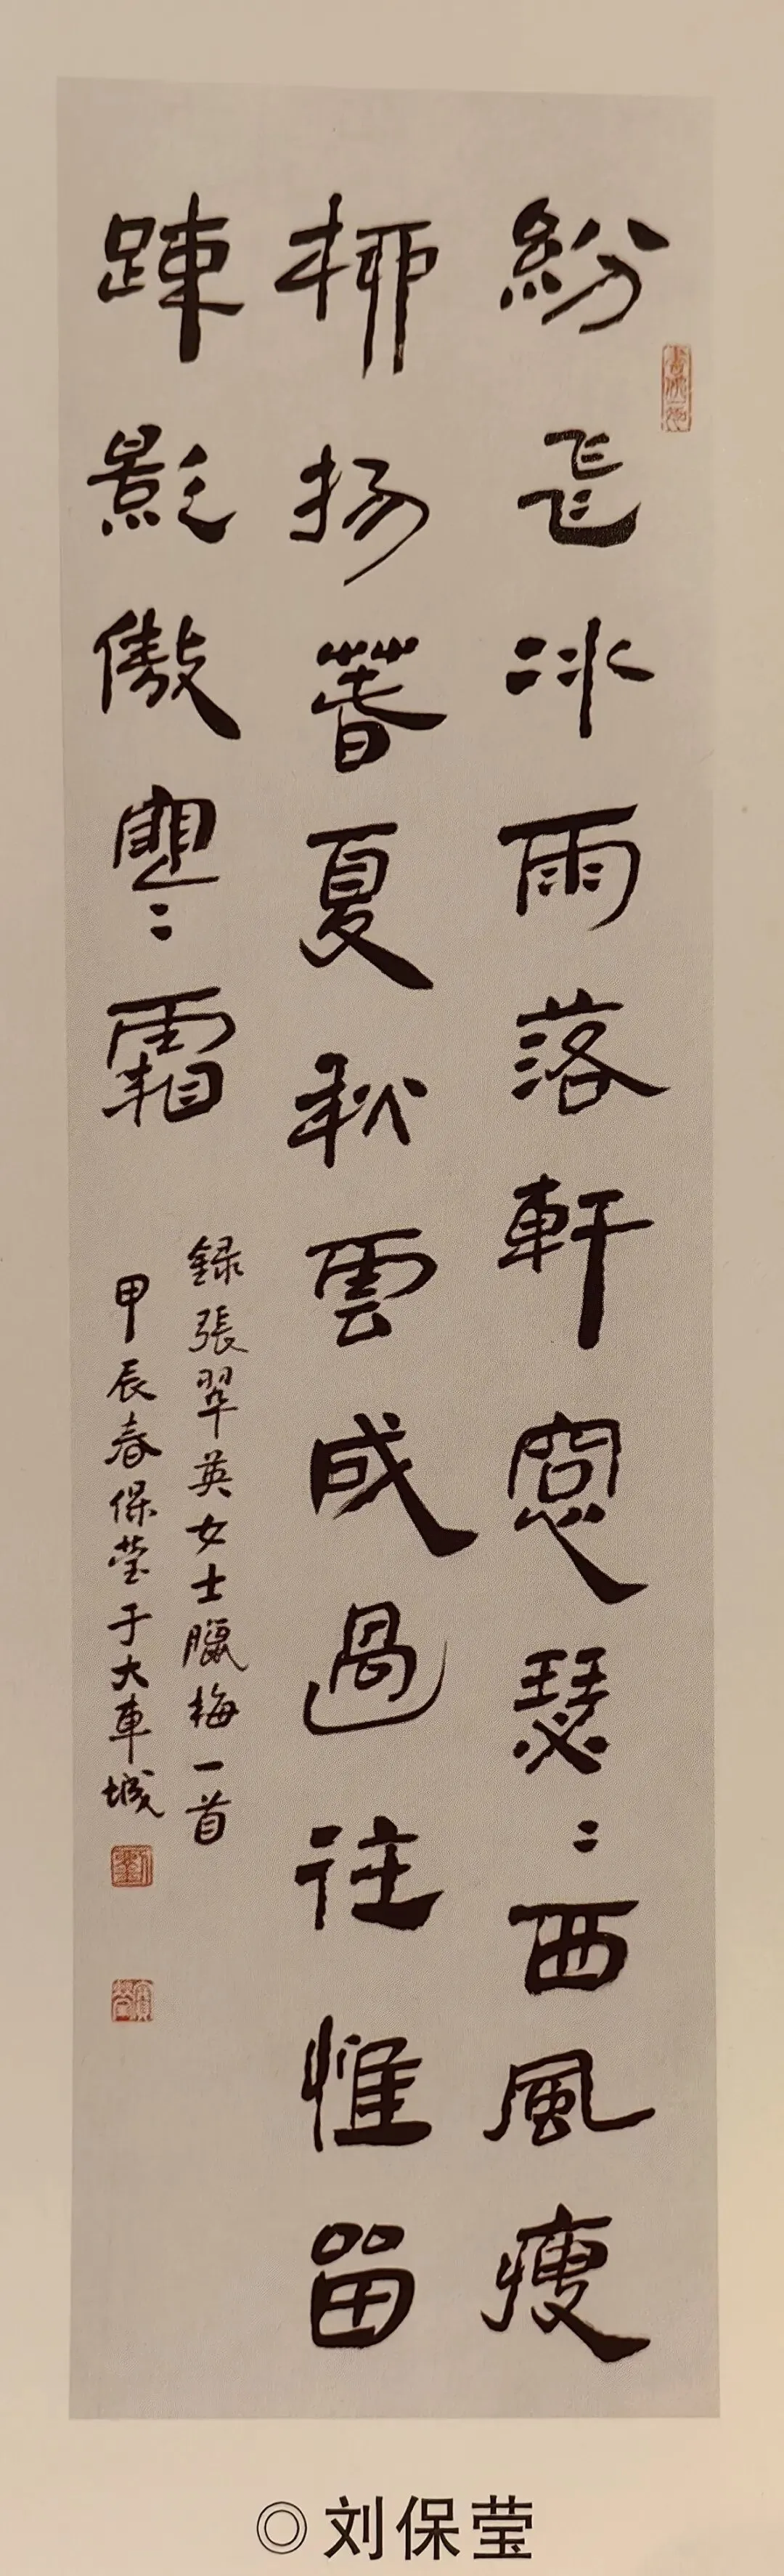 紛飛冰雨落軒窓瑟〻西風瘦
柳扬萅夏秋雲成過往惟留
踈影傲寒〻霜
録張翠英女士臘梅一首
甲辰春保莹于大車城
◎刘保莹